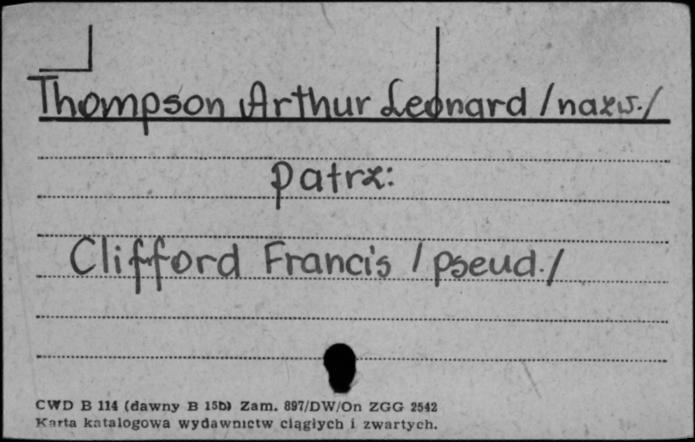 Thompson Arthur Leonard /nazw./
patrz:
Clifford Francis /pseud./
CWD B 114 (dawny B 15b) Zam. 897/DW/On ZGG 2542
Karta katalogowa wydawnictw ciągłych i zwartych.